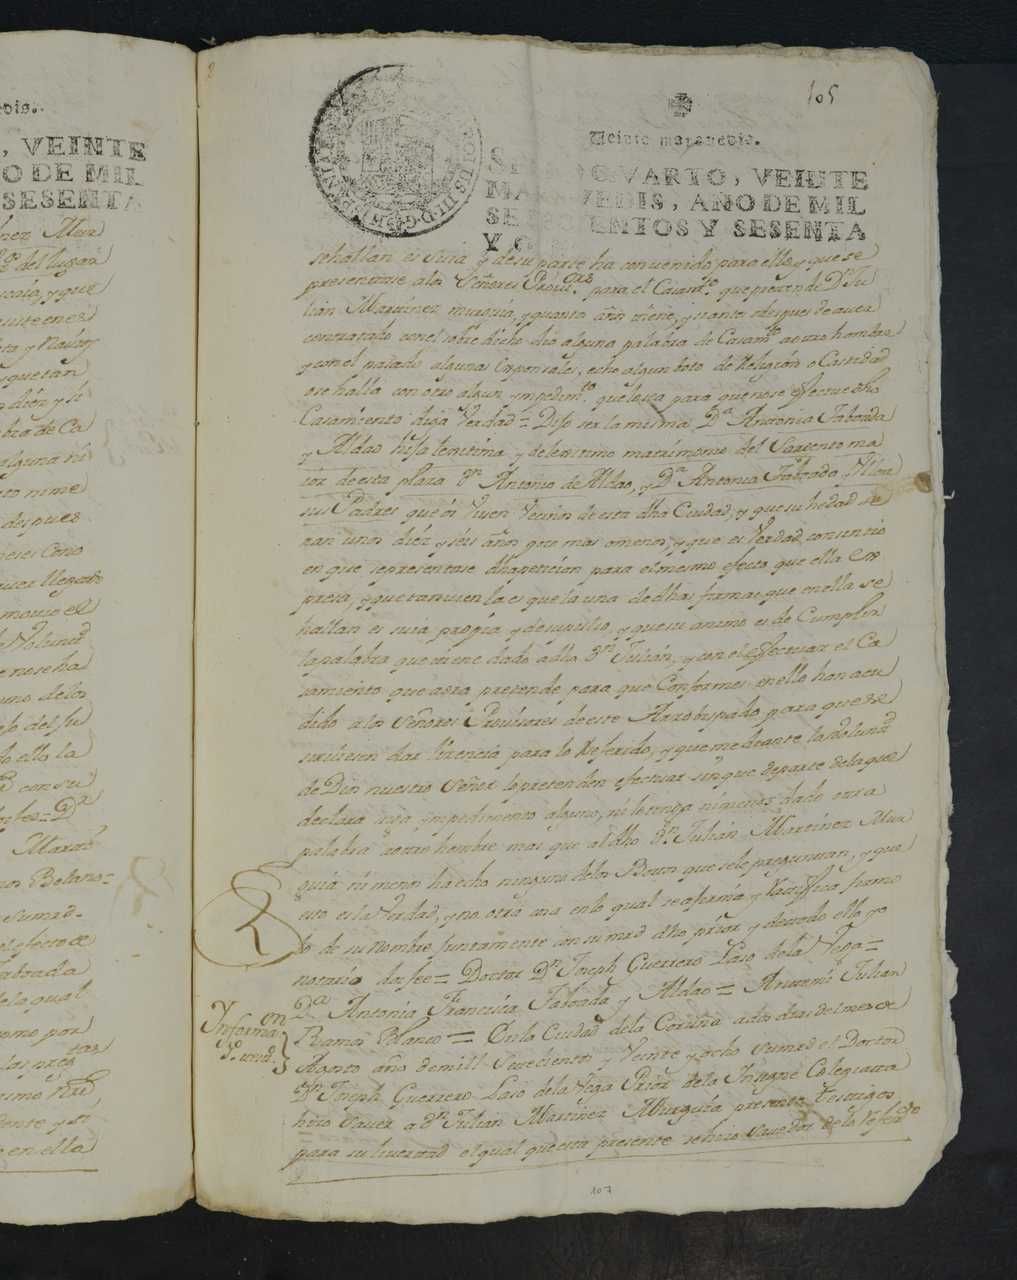 edis.
, VEINTE
O DE MIL
SESENTA
nez Mur
del lugar
y que
y Navar
y que tan
diez y si
bra de Ca
alguna ni
to nime
despues
eses Cono
aver llegado
Volunt.d
e nose ha
uno delos
do del su
do ello la
con su
doi fee= D.a
Marti
mos Belano=
sumrd.
el efecto de
Taboada
dela qual
como por
las pregtas
dente y si
e en ella
105
Veinte maravedis.
CAROLUS III D. G. HISPANIAR
SELLO QVARTO, VEINTE
MARAVEDIS, AÑO DE MIL
SETECIENTOS Y SESENTA
Y O
sehallan es suia y desu parte ha convenido para ello y que se
presentase alos Señores Provis.ores para el Casam.to que pretende D.n Ju
lian Martinez murguia, y quanto año tiene, y si antes o despues de aver
contratado con el sobre dicho dio alguna palabra de Casam.to aotro hombre
y con el pasado algunas Esponsales, echo algun boto de Religion o Castidad
ose halla con otro algun ympedim.to quelesea para que nose efectue dho
Casamiento diga Verdad= Dijo ser la misma D.a Antonia Taboada
y Aldao hija lexitima y delexitimo matrimonio del Sargento ma
ior de esta plaza D.n Antonio de Aldao, y D.a Antonia Taboada y Ulloa
sus Padres que oi viven Vecinos de esta dha Ciudad, y que su hedad se
ran unos diez y seis años poco mas omenos, y que es Verdad consentio
en que se presentase dha peticion para el mesmo efecto que ella Ex
presa, y que tanvien la es que la una de dhas firmas que en ella se
hallan es suia propia y desu puño, y que su animo es de Cumplir
la palabra que tiene dado adho D.n Julian, y con el efectuar el Ca
samiento que aora pretende para que Conformes en ello han acu
dido a los Señores Provisores de este Arzobispado para que se
sirviesen dar licencia para lo Referido, y que mediante la volunt.d
de Dios nuestro Señor lo pretenden efectuar sin que de parte dela que
declara aiga ympedimento alguno, ni lo tenga ni menos dado otra
palabra aotro hombre mas que al dho D.n Julian Martinez Mur
guia ni menos ha echo ninguno delos Botos que sele preguntan, y que
esto es la Verdad, y no otra cosa en lo qual se afirma y Ratifica firmo
lo de su nombre Juntamente con su mrd dho prior y de todo ello yo
notario doi fee= Doctor D.n Joseph Guerrero Laso de la Vega=
D.a Antonia Francisca Taboada y Aldao= Antemi Julian
Ramos Blanco= En la Ciudad de la Coruña a dos dias del mes de
Informa.on
Agosto año de mill Setecientos y Veinte y ocho sumrd el Doctor
D.n Joseph Guerrero Laso de la Vega Prior de la Insigne Colegiatta
hizo Saver a D.n Julian Martinez Murguia presente testigos
para su livertad el qual que esta presente se hizo savedor de lo Refer.do
107